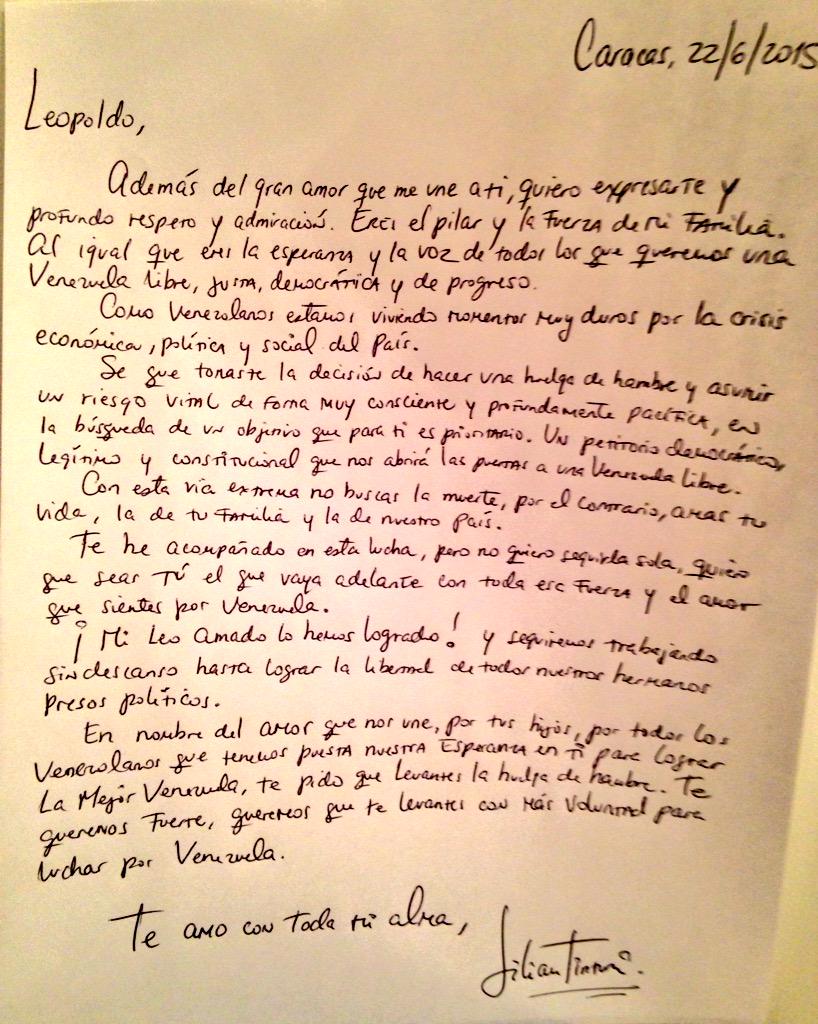 Caracas, 22/6/2015
Leopoldo,
Además del gran amor que me une a ti, quiero expresarte y
profundo respero y admiración. Eres el pilar y la Fuerza de mi Familia.
Al igual que eres la esperanza y la voz de todos los que queremos una
Venezuela libre, justa, democrática y de progreso.
Como Venezolanos estamos viviendo momentos muy duros por la crisis
económica, política y social del País.
Se que tomaste la decisión de hacer una huelga de hambre y asumir
un riesgo vital de forma muy consciente y profundamente pacífica, en
la búsqueda de un objetivo que para ti es prioritario. Un petitorio democrático,
legítimo y constitucional que nos abrirá las puertas a una Venezuela libre.
Con esta vía extrema no buscas la muerte, por el contrario, amas tu
vida, la de tu Familia y la de nuestro País.
Te he acompañado en esta lucha, pero no quiero seguirla sola, quiero
que seas TÚ el que vaya adelante con toda esa Fuerza y el amor
que sientes por Venezuela.
¡Mi Leo Amado lo hemos logrado! y seguiremos trabajando
sin descanso hasta lograr la libertad de todos nuestros hermanos
presos políticos.
En nombre del amor que nos une, por tus hijos, por todos los
Venezolanos que tenemos puesta nuestra Esperanza en ti para lograr
La Mejor Venezuela, te pido que levantes la huelga de hambre. Te
queremos Fuerte, queremos que te levantes con más voluntad para
luchar por Venezuela.
Te amo con toda mi alma,
Lilian Tintori.